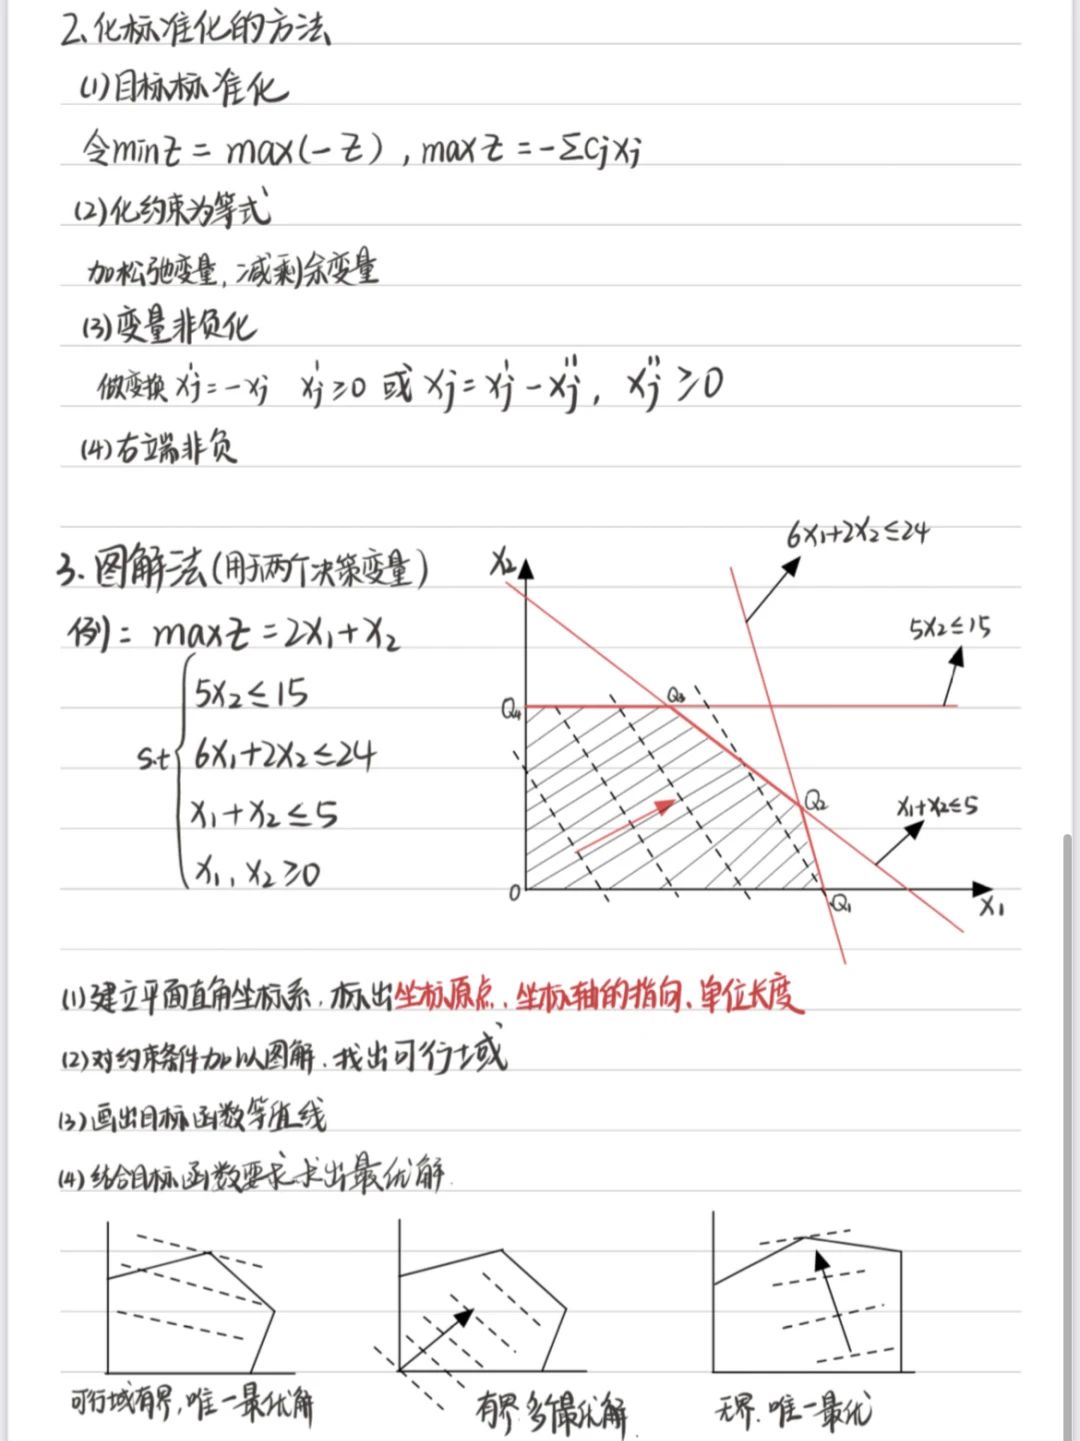 2、化标准化的方法
(1)目标标准化
令minz = max(-z), maxz = -ΣCjxj
(2)化约束为等式
加松弛变量,减剩余变量
(3)变量非负化
做变换 xj' = -xj xj' ≥ 0 或 xj = xj' - xj'', xj'' ≥ 0
(4)右端非负
3. 图解法(用于两个决策变量)
例: maxz = 2x₁+x₂
s.t
5x₂ ≤ 15
6x₁+2x₂ ≤ 24
x₁+x₂ ≤ 5
x₁, x₂ ≥ 0
x₂
6x₁+2x₂≤24
5x₂≤15
Q₄
Q₃
Q₂
x₁+x₂≤5
0
Q₁
x₁
(1)建立平面直角坐标系,标出坐标原点、坐标轴的指向、单位长度
(2)对约束条件加以图解、找出可行域
(3)画出目标函数等值线
(4)结合目标函数要求求出最优解.
可行域有界,唯一最优解
有界,多个最优解.
无界.唯一最优